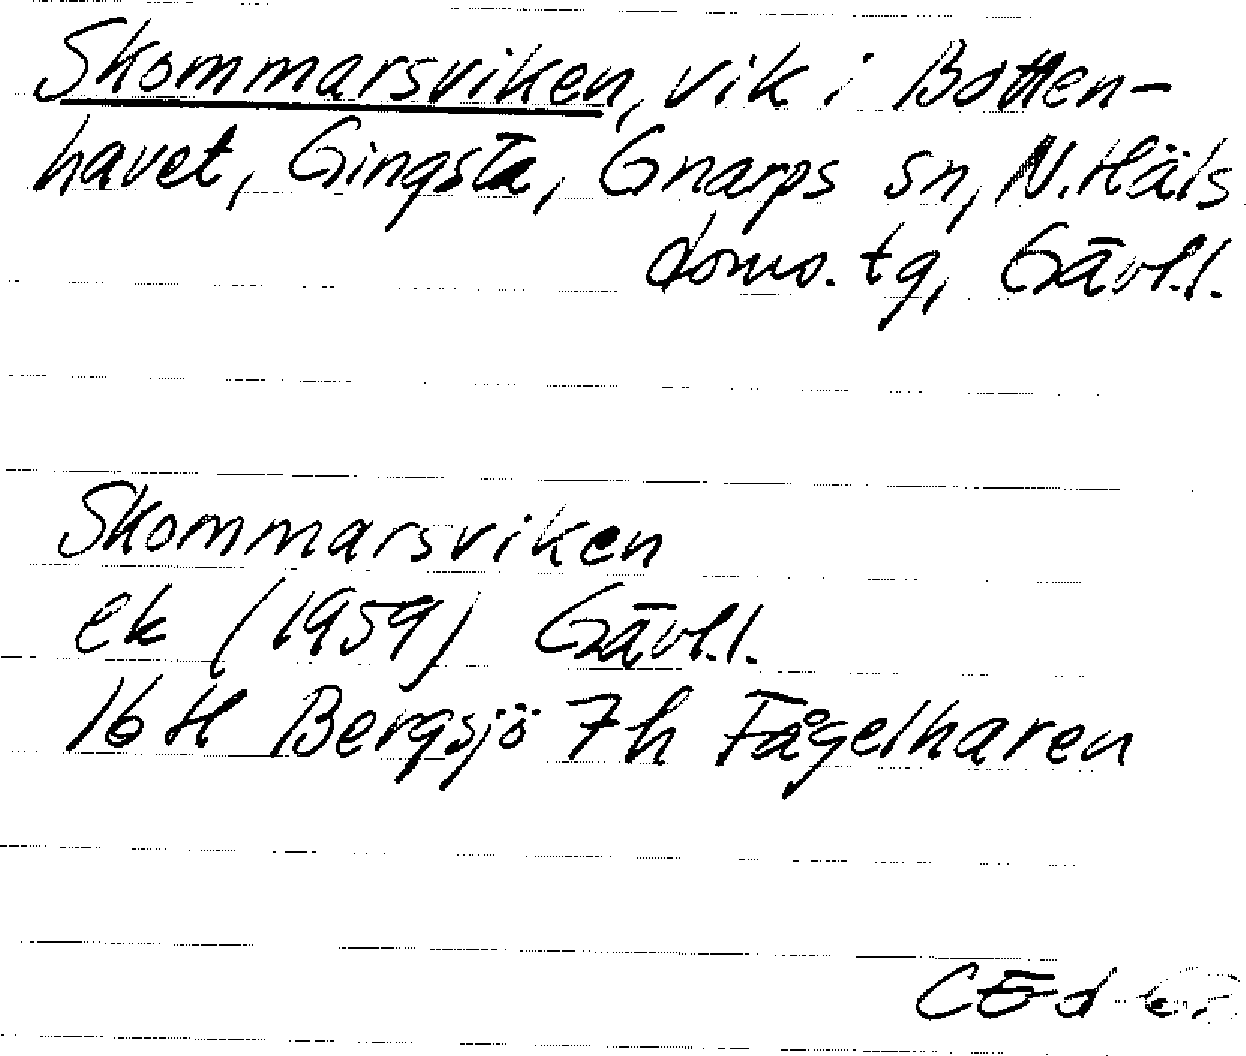 Skommarsviken, vik i Botten-
havet, Gingsta, Gnarps sn, N. Häls
doms. tg, Gävl.l.
Skommarsviken
ek (1959) Gävl.l.
16 H Bergsjö 7 h Fågelharen